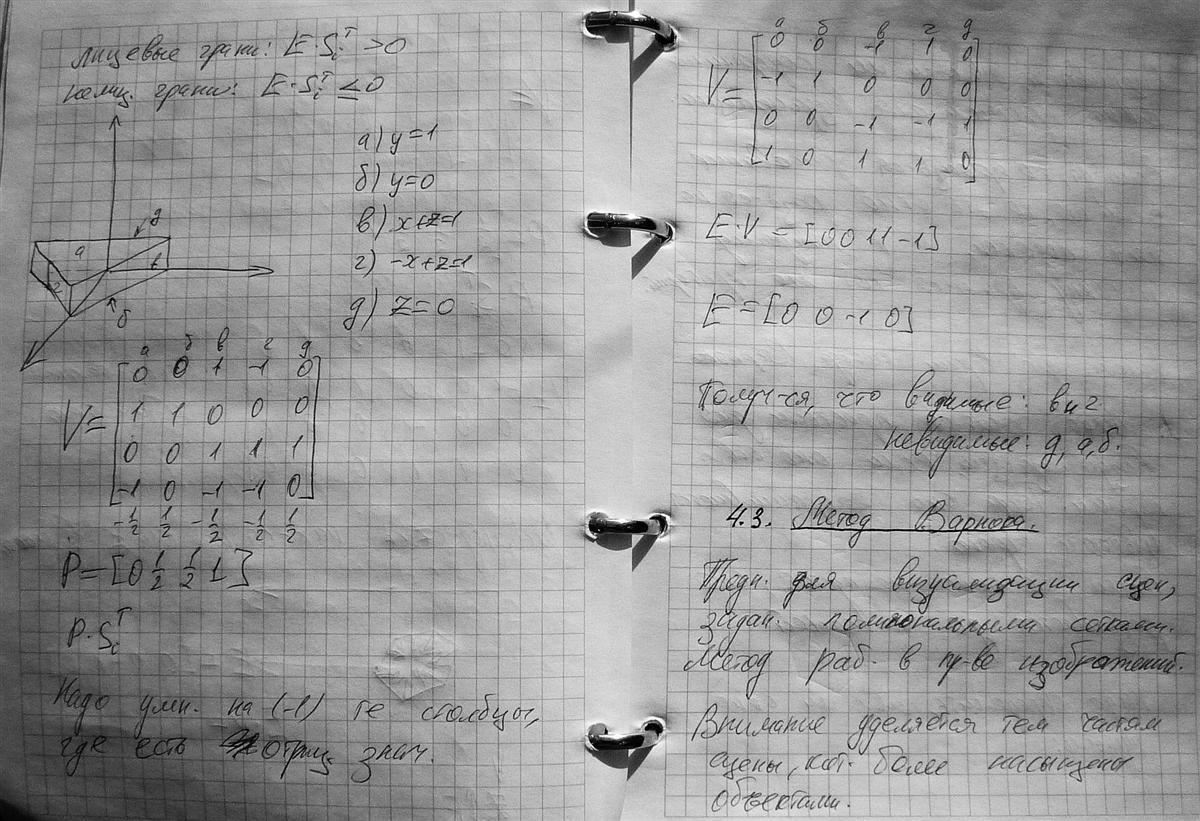 лицевые грани: E·Sᵢᵀ>0
нелиц. грани: E·Sᵢᵀ≤0
а) y=1
б) y=0
в) x+z=1
г) -x+z=1
д) z=0
д
а
в
г
б
а б в г д
V= [0 0 1 -1 0
1 1 0 0 0
0 0 1 1 1
-1 0 -1 -1 0]
-1/2 1/2 -1/2 -1/2 1/2
P=[0 1/2 1/2 1]
P·Sᵢᵀ
Надо умн. на (-1) те столбцы,
где есть отриц. знач.
а б в г д
V= [0 0 -1 1 0
-1 1 0 0 0
0 0 -1 -1 1
1 0 1 1 0]
E·V=[0 0 1 1 -1]
E=[0 0 -1 0]
Получ-ся, что видимые: в и г
невидимые: д, а, б.
4.3. Метод Варнока.
Предн. для визуализации сцен,
задан. полигональными сетками.
Метод раб. в пр-ве изображений.
Внимание уделяется тем частям
сцены, кот. более насыщены
объектами.